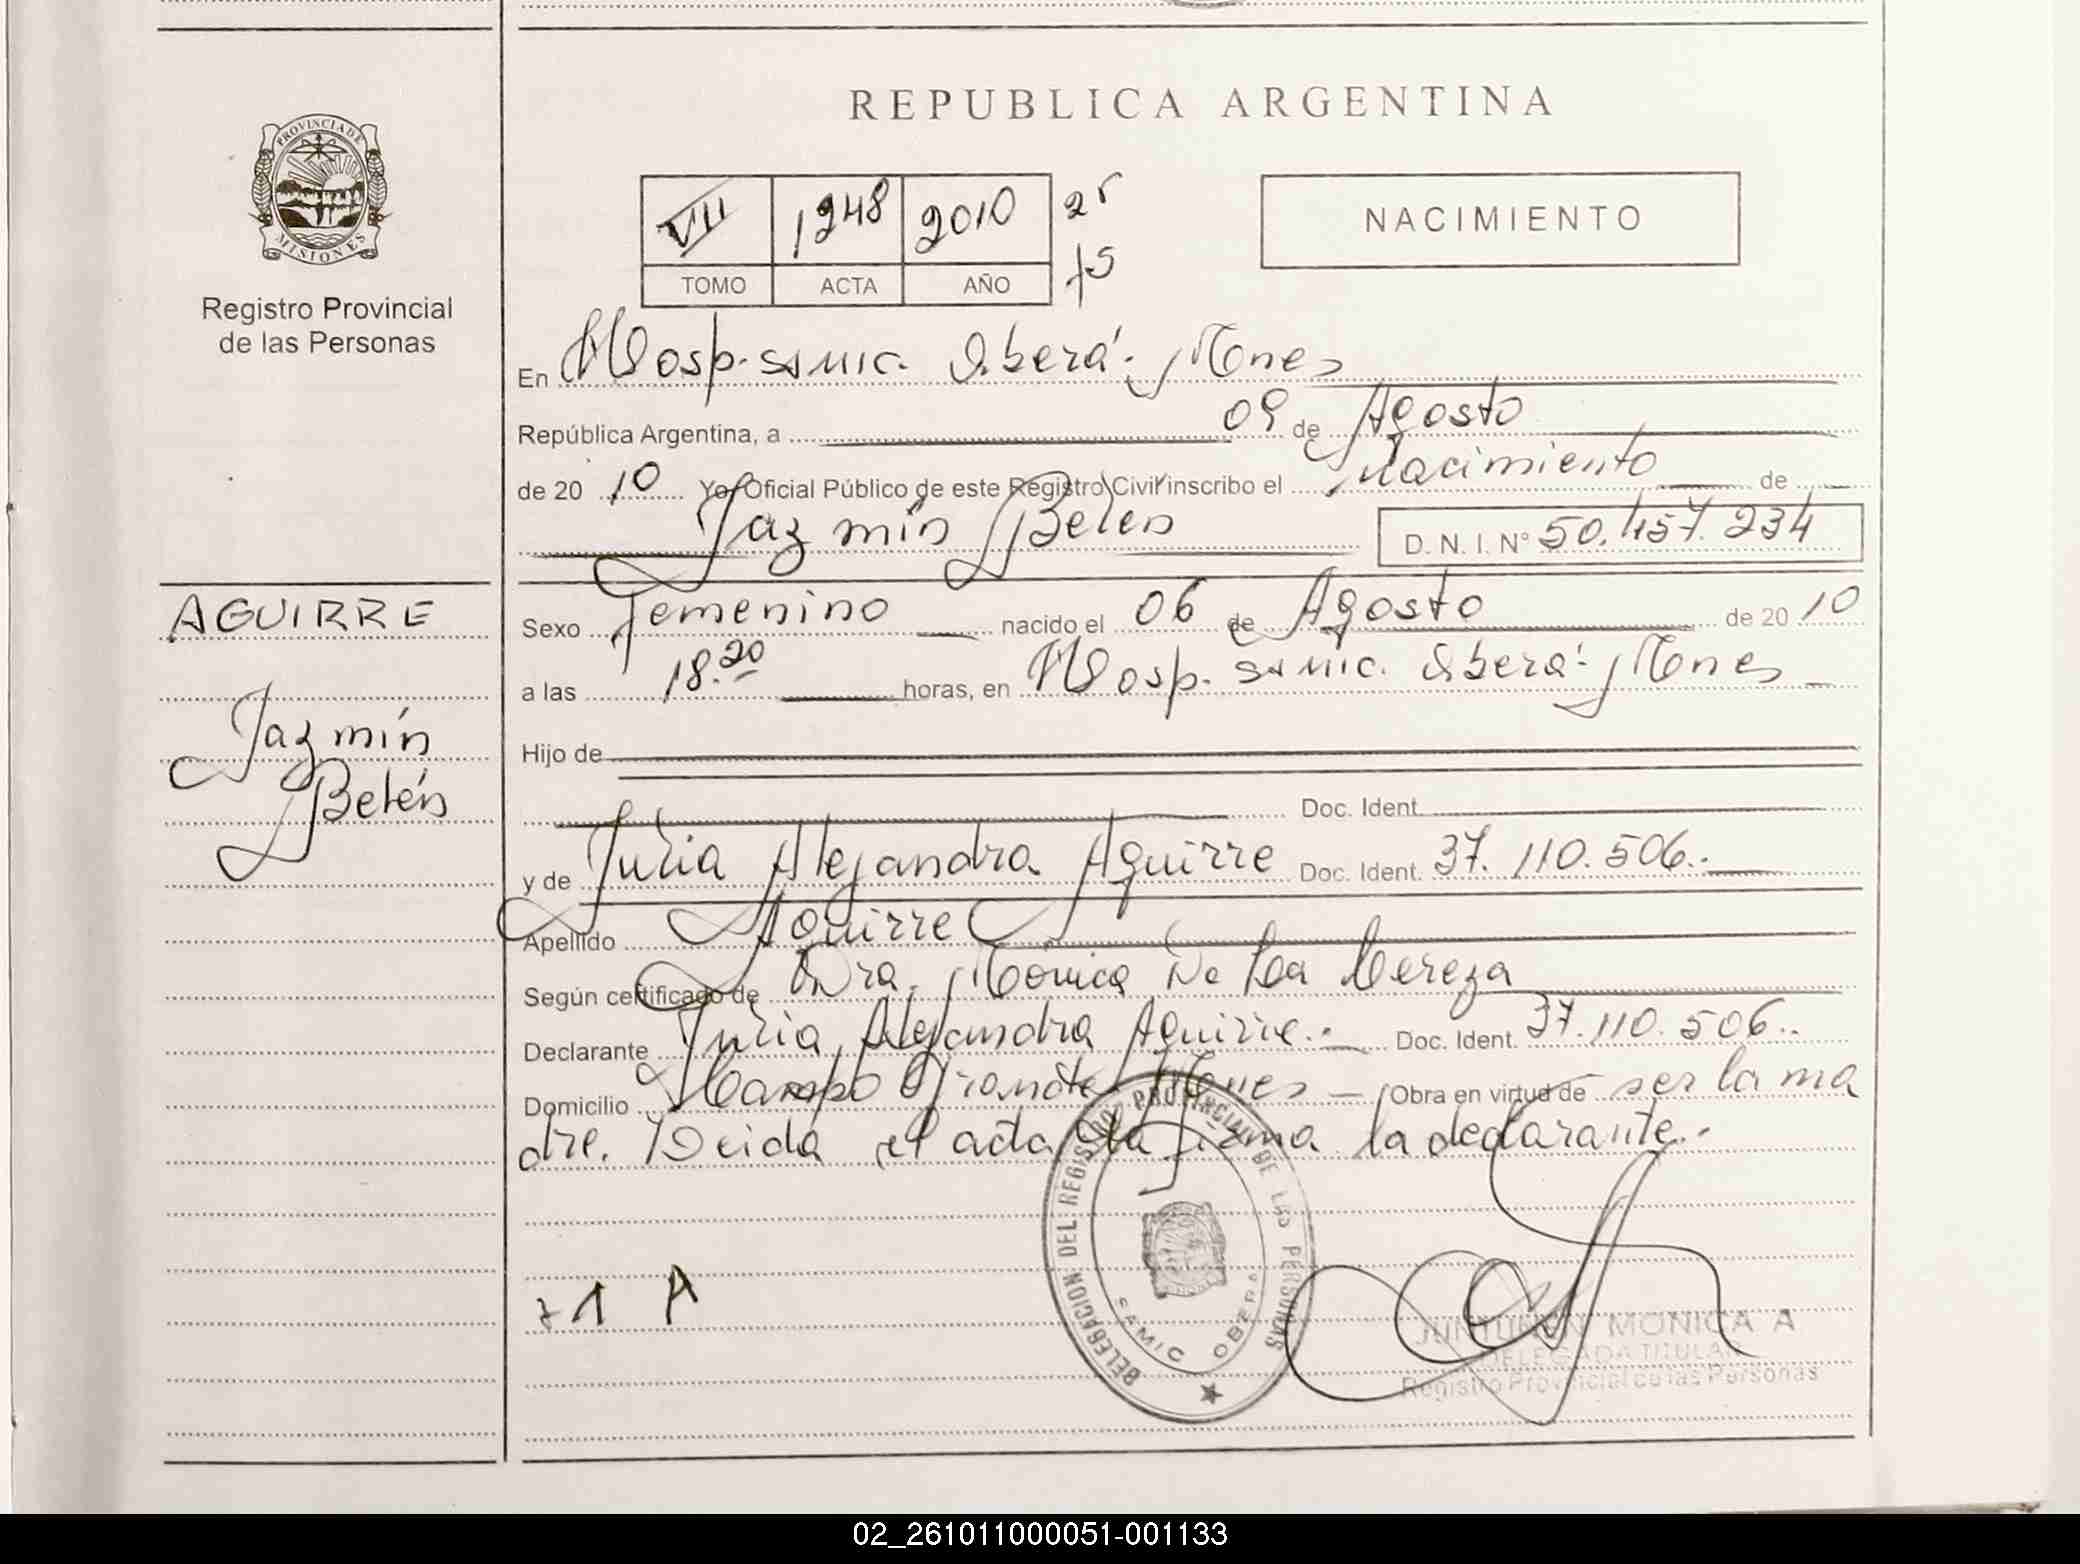 REPUBLICA ARGENTINA
PROVINCIA DE
MISIONES
Registro Provincial
de las Personas
VII 1248 2010 25
TOMO ACTA AÑO 15
NACIMIENTO
En Hosp. SAMIC. Oberá - Mnes
República Argentina, a 09 de Agosto
de 20 10 Yo, Oficial Público de este Registro Civil inscribo el Nacimiento de
Jazmín Belén D. N. I. Nº 50.457.234
AGUIRRE
Jazmín
Belén
Sexo Femenino nacido el 06 de Agosto de 20 10
a las 18.20 horas, en Hosp. SAMIC. Oberá - Mnes
Hijo de
Doc. Ident.
y de Julia Alejandra Aguirre Doc. Ident. 37.110.506.-
Apellido Aguirre
Según certificado de Dra. Mónica De La
Declarante Julia Alejandra Aguirre.- Doc. Ident. 37.110.506..
Domicilio Campo Grande Mnes Obra en virtud de ser la ma
dre. Leida el acta la firma la declarante.-
DELEGACION DEL REGISTRO PROVINCIAL DE LAS PERSONAS
SAMIC OBERA
71 A
MONICA A
DELEGADA TITULAR
Registro Provincial de las Personas
02_261011000051-001133